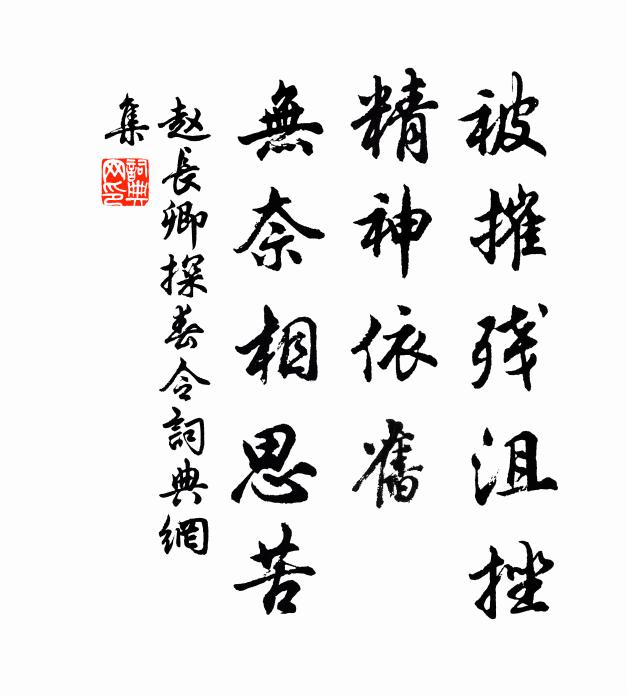 被摧残沮挫
精神依舊
無奈相思苦
赵長卿探春令詞典網
集
詞典網印